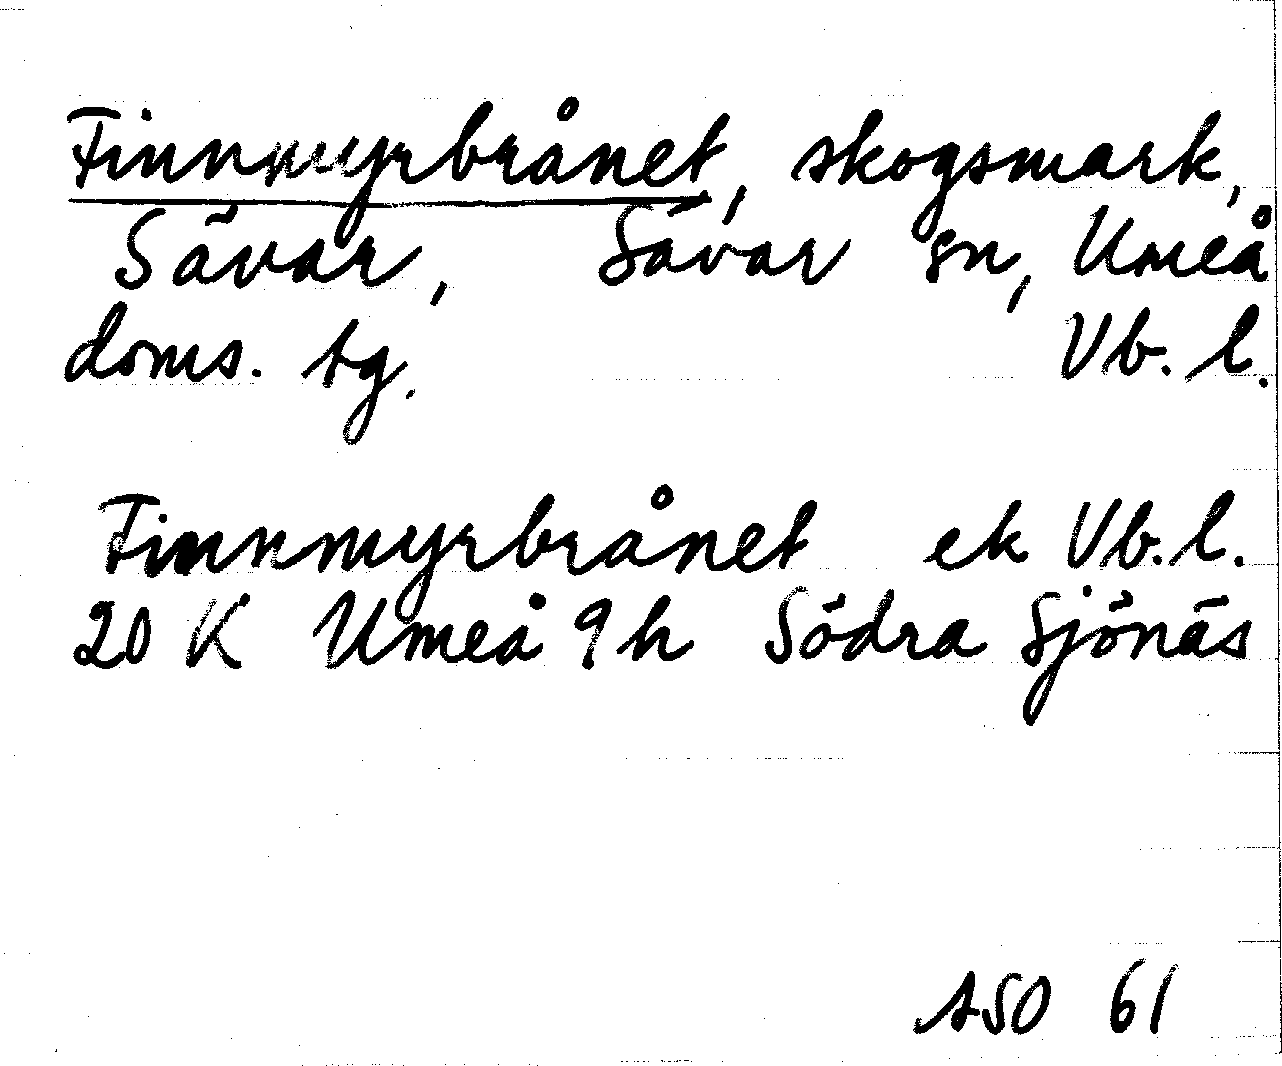 Finnmyrbrånet, skogsmark,
Sävar, Sävar sn, Umeå
doms. tg. Vb. l.
Finnmyrbrånet ek Vb. l.
20 K Umeå 9h Södra Sjönäs
ASO 61